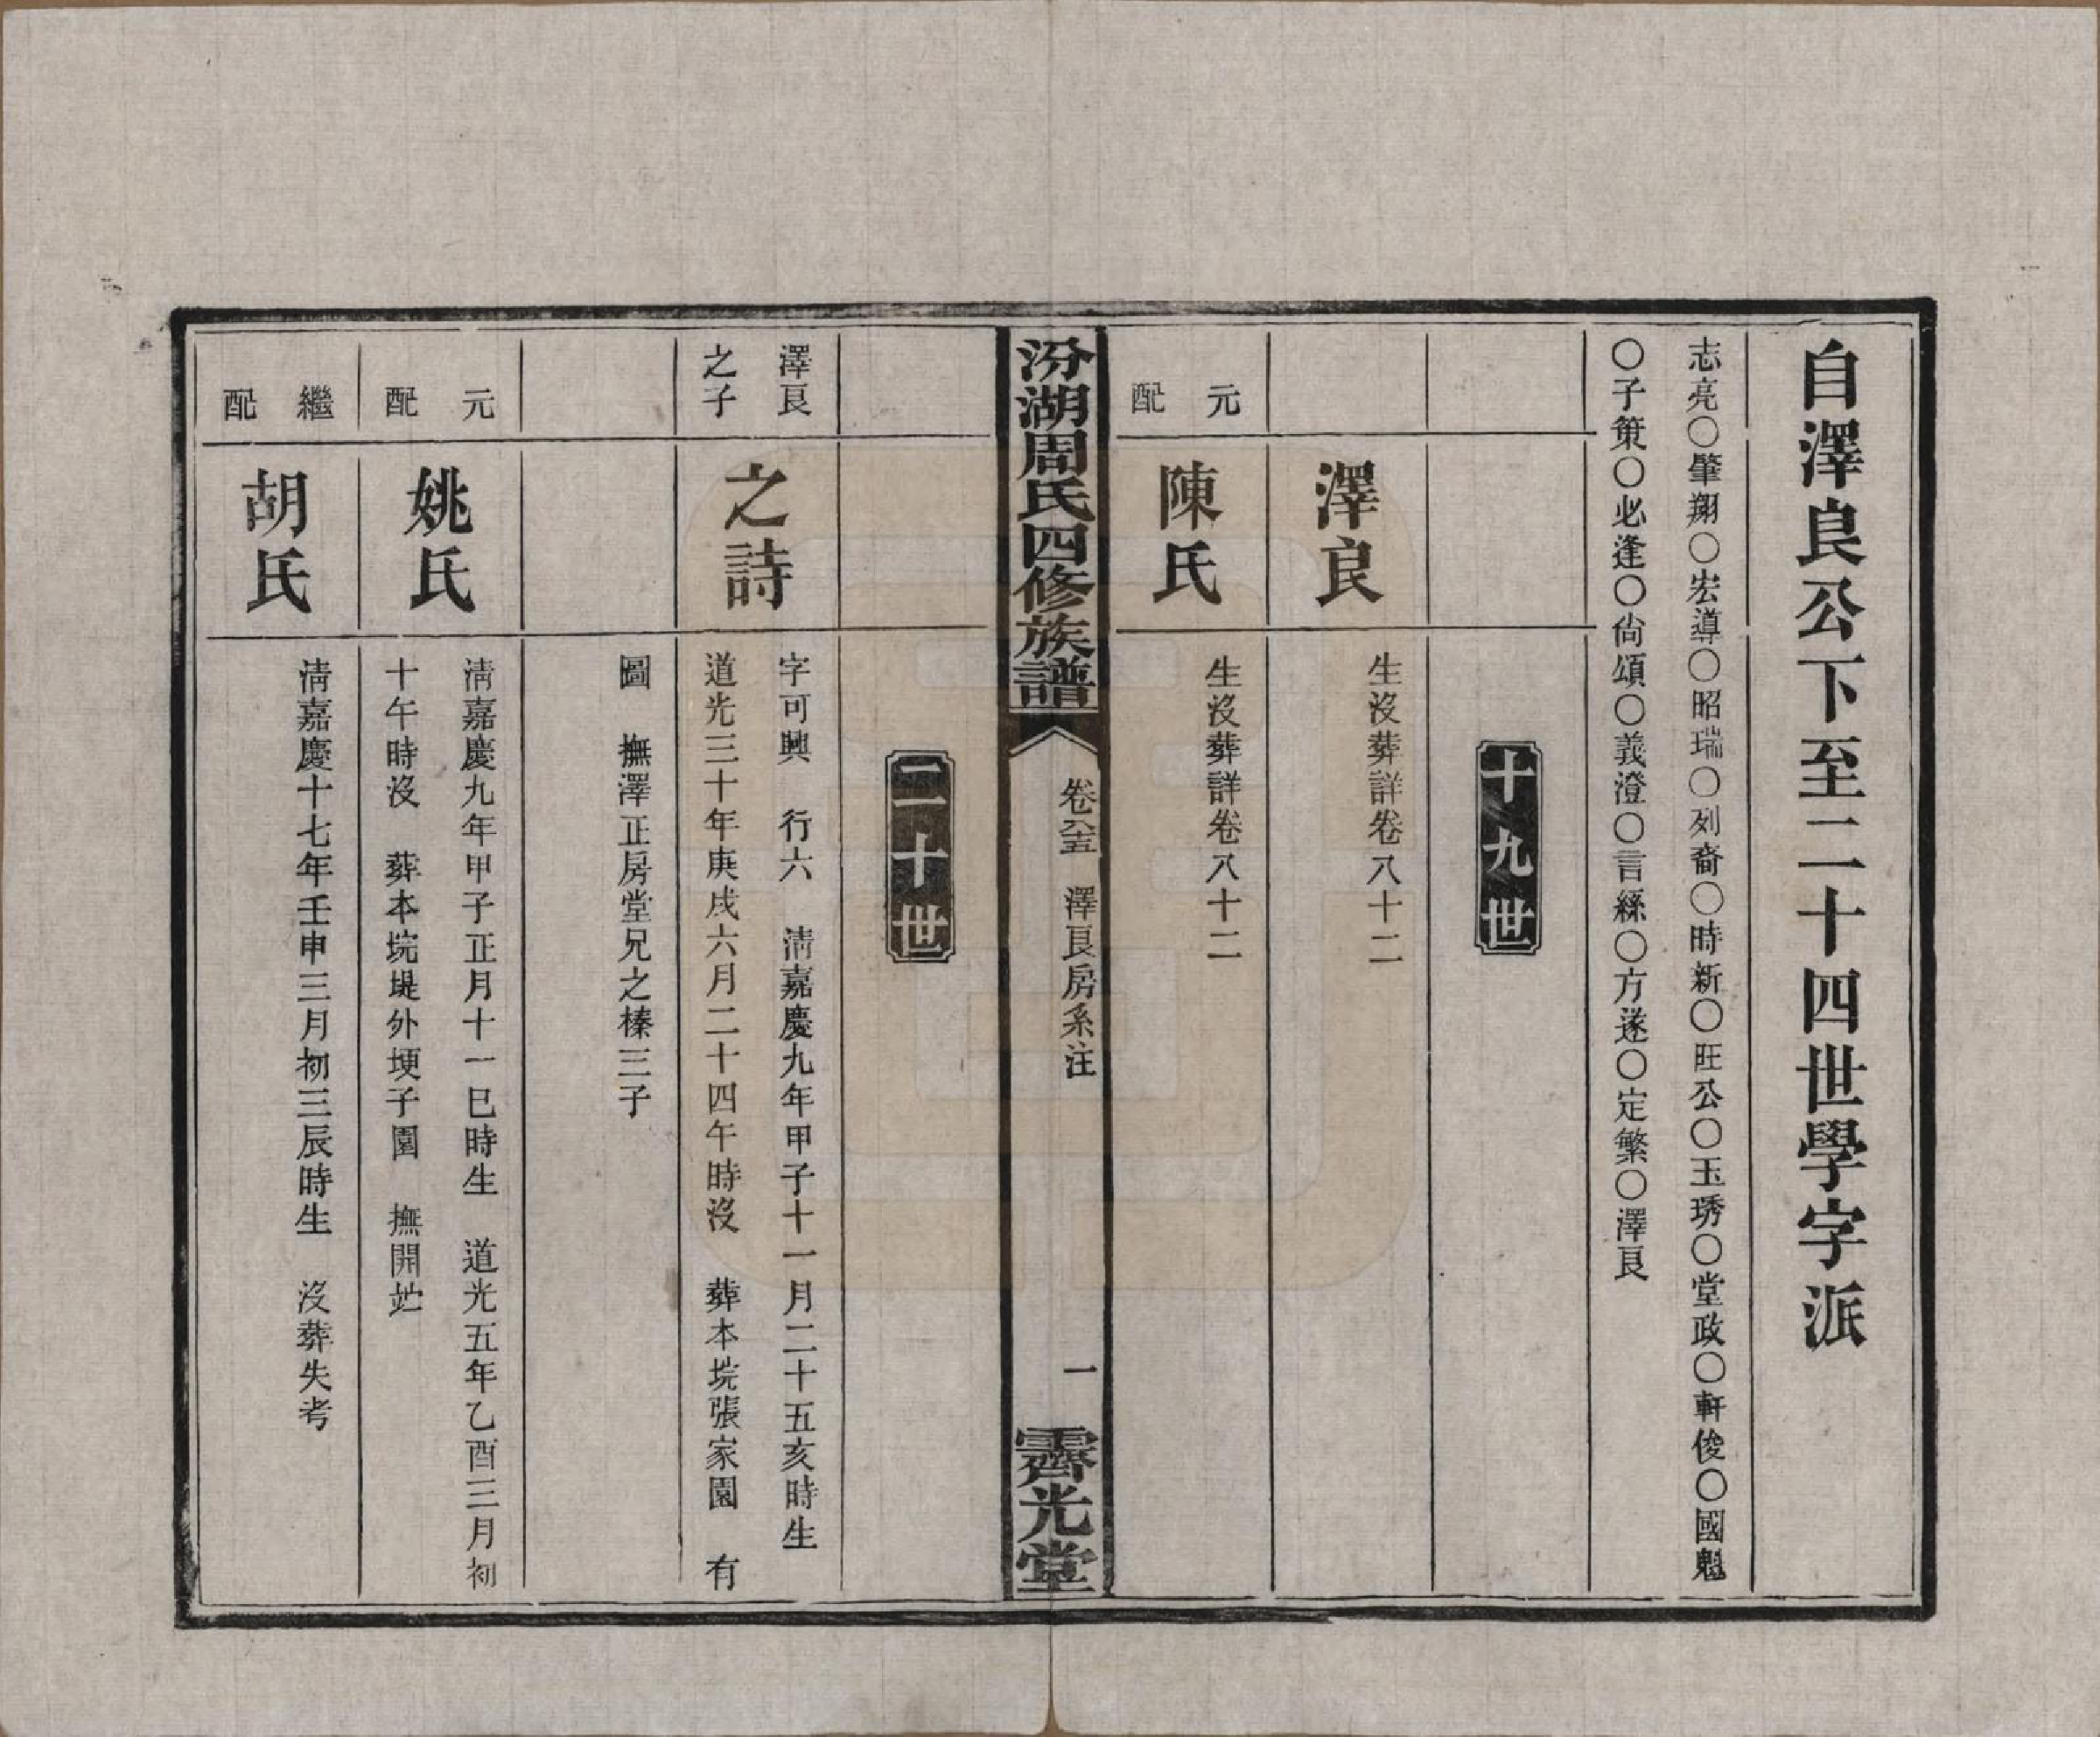 自澤良公下至二十四世學字派
志亮〇肇翔〇宏導〇昭瑞〇列裔〇時新〇旺公〇玉琇〇堂政〇軒俊〇國魁
〇子策〇必逢〇尙頌〇義澄〇言綵〇方遂〇定繁〇澤良
十九世
澤良
生沒葬詳卷八十二
元配
陳氏
生沒葬詳卷八十二
汾湖周氏四修族譜
卷八十五 澤良房系注
一
霽光堂
二十世
澤良之子
之詩
字可興 行六 淸嘉慶九年甲子十一月二十五亥時生
道光三十年庚戌六月二十四午時沒 葬本垸張家園 有
圖 撫澤正房堂兄之榛三子
元配
姚氏
淸嘉慶九年甲子正月十一巳時生 道光五年乙酉三月初
十午時沒 葬本垸堤外埂子園 撫開
繼配
胡氏
淸嘉慶十七年壬申三月初三辰時生 沒葬失考